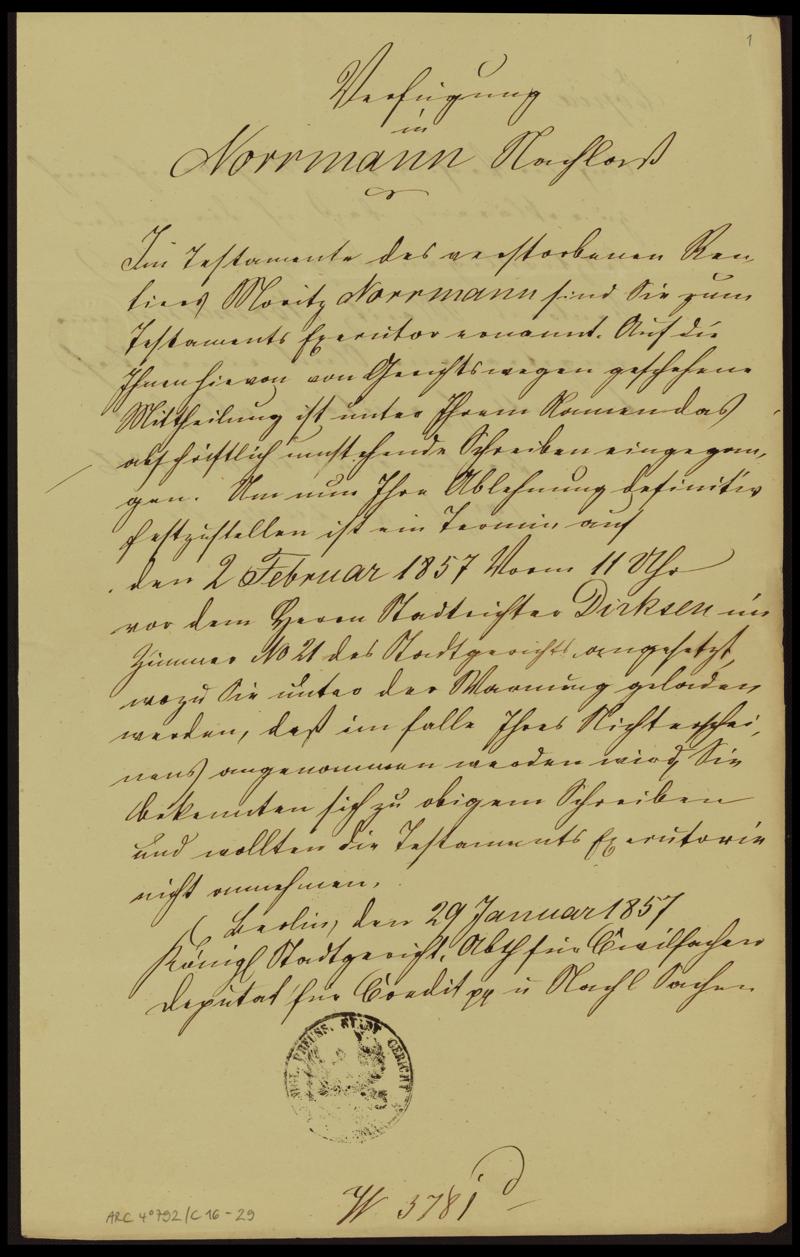 1
Verfügung
in
Norrmann Nachlaß
Im Testamente des verstorbenen Ren-
tiers Moritz Norrmann sind Sie zum
Testaments Executor ernannt. Auf die
Ihnen hievon von Gerichtswegen geschehene
Mittheilung ist unter Ihrem Namen das
abschriftlich umstehende Schreiben eingegan-
gen. Um nun Ihre Ablehnung definitiv
festzustellen ist ein Termin auf
den 2 Februar 1857 Vorm 11 Uhr
vor dem Herrn Stadtrichter Dirksen im
Zimmer No 21 des Stadtgerichts angesetzt,
wozu Sie unter der Warnung geladen
werden, daß im Falle Ihres Nichterschei-
nens angenommen werden wird, Sie
bekennten sich zu obigem Schreiben
und wollten die Testaments Executorie
nicht annehmen.
Berlin, den 29 Januar 1857
Königl Stadtgericht, Abth für Civilsachen
Deputat für Credit pp u Nachl Sachen
KÖNIGL. PREUSS. STADT GERICHT
N 378
ARC 4° 792/C 16-29